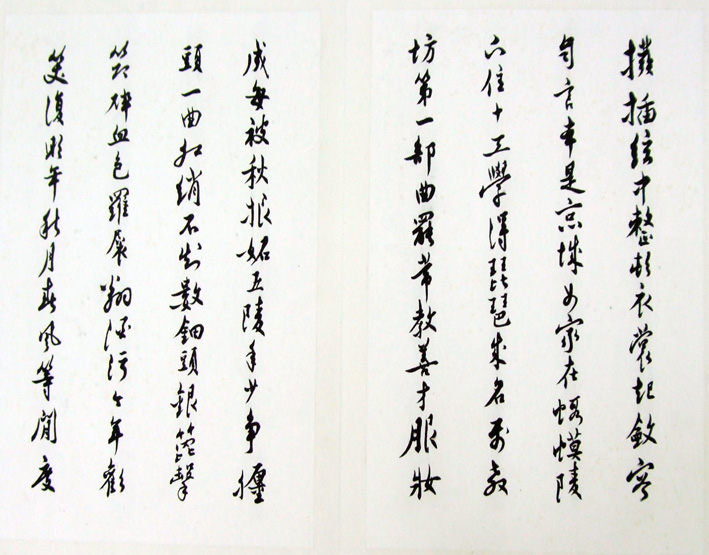 撥插絃中整頓衣裳起斂容
自言本是京城女家在蝦蟆陵
下住十三學得琵琶成名屬教
坊第一部曲罷常教善才服妝
成每被秋娘妬五陵年少爭纏
頭一曲紅綃不知數鈿頭銀篦擊
節碎血色羅裙翻酒污今年歡
笑復明年秋月春風等閒度